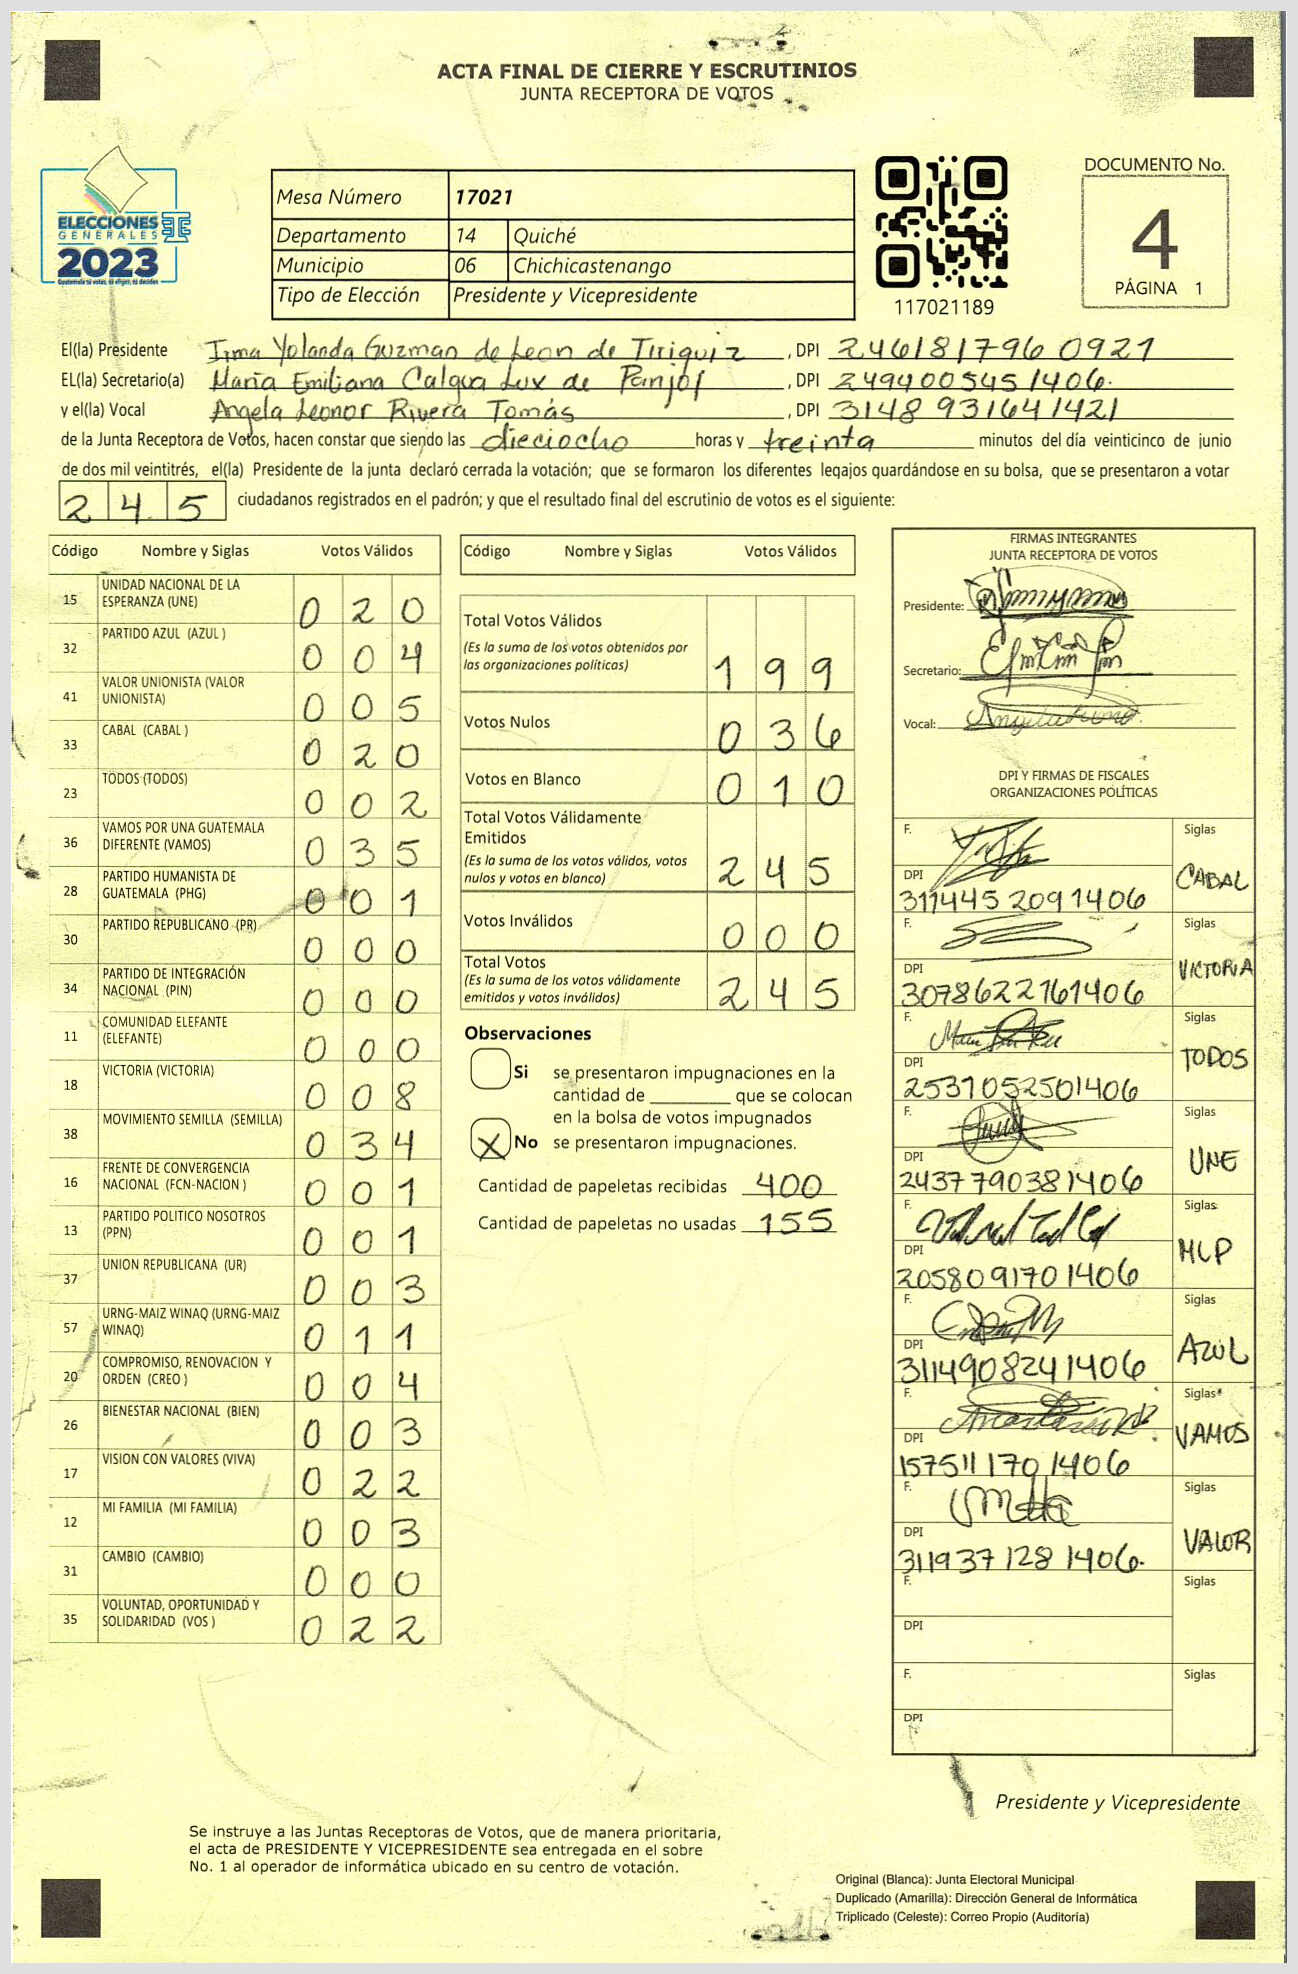 ACTA FINAL DE CIERRE Y ESCRUTINIOS
JUNTA RECEPTORA DE VOTOS
ELECCIONES
GENERALES
2023
Guatemala tú votas, tú eliges, tú decides
Mesa Número 17021
Departamento 14 Quiché
Municipio 06 Chichicastenango
Tipo de Elección Presidente y Vicepresidente
117021189
DOCUMENTO No.
4
PÁGINA 1
El(la) Presidente Irma Yolanda Guzman de Leon de Tiriquiz, DPI 246181796 0921
EL(la) Secretario(a) Maria Emiliana Calgua Lux de Panjoj, DPI 249400545 1406.
y el(la) Vocal Angela Leonor Rivera Tomás, DPI 3148 93164 1421
de la Junta Receptora de Votos, hacen constar que siendo las dieciocho horas y treinta minutos del día veinticinco de junio
de dos mil veintitrés, el(la) Presidente de la junta declaró cerrada la votación; que se formaron los diferentes legajos guardándose en su bolsa, que se presentaron a votar
2 4 5 ciudadanos registrados en el padrón; y que el resultado final del escrutinio de votos es el siguiente:
Código Nombre y Siglas Votos Válidos
15 UNIDAD NACIONAL DE LA ESPERANZA (UNE) 0 2 0
32 PARTIDO AZUL (AZUL ) 0 0 4
41 VALOR UNIONISTA (VALOR UNIONISTA) 0 0 5
33 CABAL (CABAL ) 0 2 0
23 TODOS (TODOS) 0 0 2
36 VAMOS POR UNA GUATEMALA DIFERENTE (VAMOS) 0 3 5
28 PARTIDO HUMANISTA DE GUATEMALA (PHG) 0 0 1
30 PARTIDO REPUBLICANO (PR) 0 0 0
34 PARTIDO DE INTEGRACIÓN NACIONAL (PIN) 0 0 0
11 COMUNIDAD ELEFANTE (ELEFANTE) 0 0 0
18 VICTORIA (VICTORIA) 0 0 8
38 MOVIMIENTO SEMILLA (SEMILLA) 0 3 4
16 FRENTE DE CONVERGENCIA NACIONAL (FCN-NACION ) 0 0 1
13 PARTIDO POLITICO NOSOTROS (PPN) 0 0 1
37 UNION REPUBLICANA (UR) 0 0 3
57 URNG-MAIZ WINAQ (URNG-MAIZ WINAQ) 0 1 1
20 COMPROMISO, RENOVACION Y ORDEN (CREO ) 0 0 4
26 BIENESTAR NACIONAL (BIEN) 0 0 3
17 VISION CON VALORES (VIVA) 0 2 2
12 MI FAMILIA (MI FAMILIA) 0 0 3
31 CAMBIO (CAMBIO) 0 0 0
35 VOLUNTAD, OPORTUNIDAD Y SOLIDARIDAD (VOS ) 0 2 2
Código Nombre y Siglas Votos Válidos
Total Votos Válidos
(Es la suma de los votos obtenidos por
las organizaciones políticas) 1 9 9
Votos Nulos 0 3 6
Votos en Blanco 0 1 0
Total Votos Válidamente
Emitidos
(Es la suma de los votos válidos, votos
nulos y votos en blanco) 2 4 5
Votos Inválidos 0 0 0
Total Votos
(Es la suma de los votos válidamente
emitidos y votos inválidos) 2 4 5
Observaciones
Si se presentaron impugnaciones en la
cantidad de ________ que se colocan
en la bolsa de votos impugnados
X No se presentaron impugnaciones.
Cantidad de papeletas recibidas 400
Cantidad de papeletas no usadas 155
FIRMAS INTEGRANTES
JUNTA RECEPTORA DE VOTOS
Presidente:
Secretario:
Vocal:
DPI Y FIRMAS DE FISCALES
ORGANIZACIONES POLÍTICAS
F. Siglas
DPI CABAL
311445 209 1406
F. Siglas
DPI VICTORIA
3078622161406
F. Siglas
DPI TODOS
2531052501406
F. Siglas
DPI UNE
2437790381406
F. Siglas
DPI MLP
2058091701406
F. Siglas
DPI AZUL
3114908241406
F. Siglas
DPI VAMOS
157511170 1406
F. Siglas
DPI VALOR
311937128 1406.
F. Siglas
DPI
F. Siglas
DPI
Presidente y Vicepresidente
Se instruye a las Juntas Receptoras de Votos, que de manera prioritaria,
el acta de PRESIDENTE Y VICEPRESIDENTE sea entregada en el sobre
No. 1 al operador de informática ubicado en su centro de votación.
Original (Blanca): Junta Electoral Municipal
Duplicado (Amarilla): Dirección General de Informática
Triplicado (Celeste): Correo Propio (Auditoría)